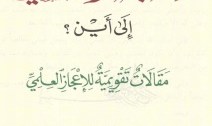 إِلَى أَيْنَ ؟
مَقَالَاتٌ تَقْوِيمِيَّةٌ لِلإِعْجَازِ العِلْمِيِّ